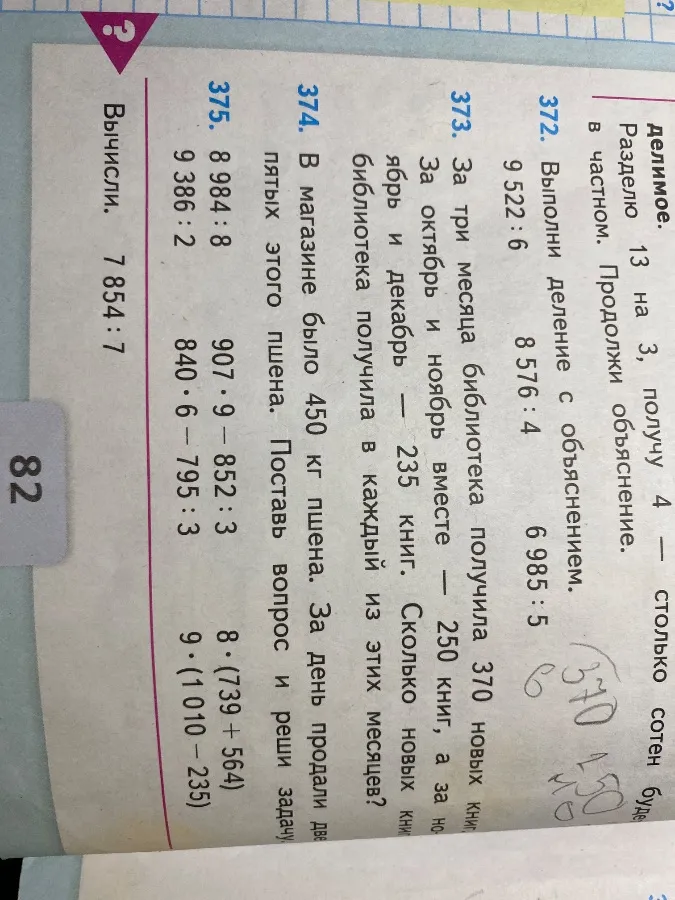 делимое.
Разделю 13 на 3, получу 4 — столько сотен
в частном. Продолжи объяснение.
372. Выполни деление с объяснением.
9 522 : 6 8 576 : 4 6 985 : 5
373. За три месяца библиотека получила 370 новых книг
За октябрь и ноябрь вместе — 250 книг, а за но-
ябрь и декабрь — 235 книг. Сколько новых книг
библиотека получила в каждый из этих месяцев?
374. В магазине было 450 кг пшена. За день продали две
пятых этого пшена. Поставь вопрос и реши задачу.
375. 8 984 : 8 907 · 9 − 852 : 3 8 · (739 + 564)
9 386 : 2 840 · 6 − 795 : 3 9 · (1 010 − 235)
? Вычисли. 7 854 : 7
82
370